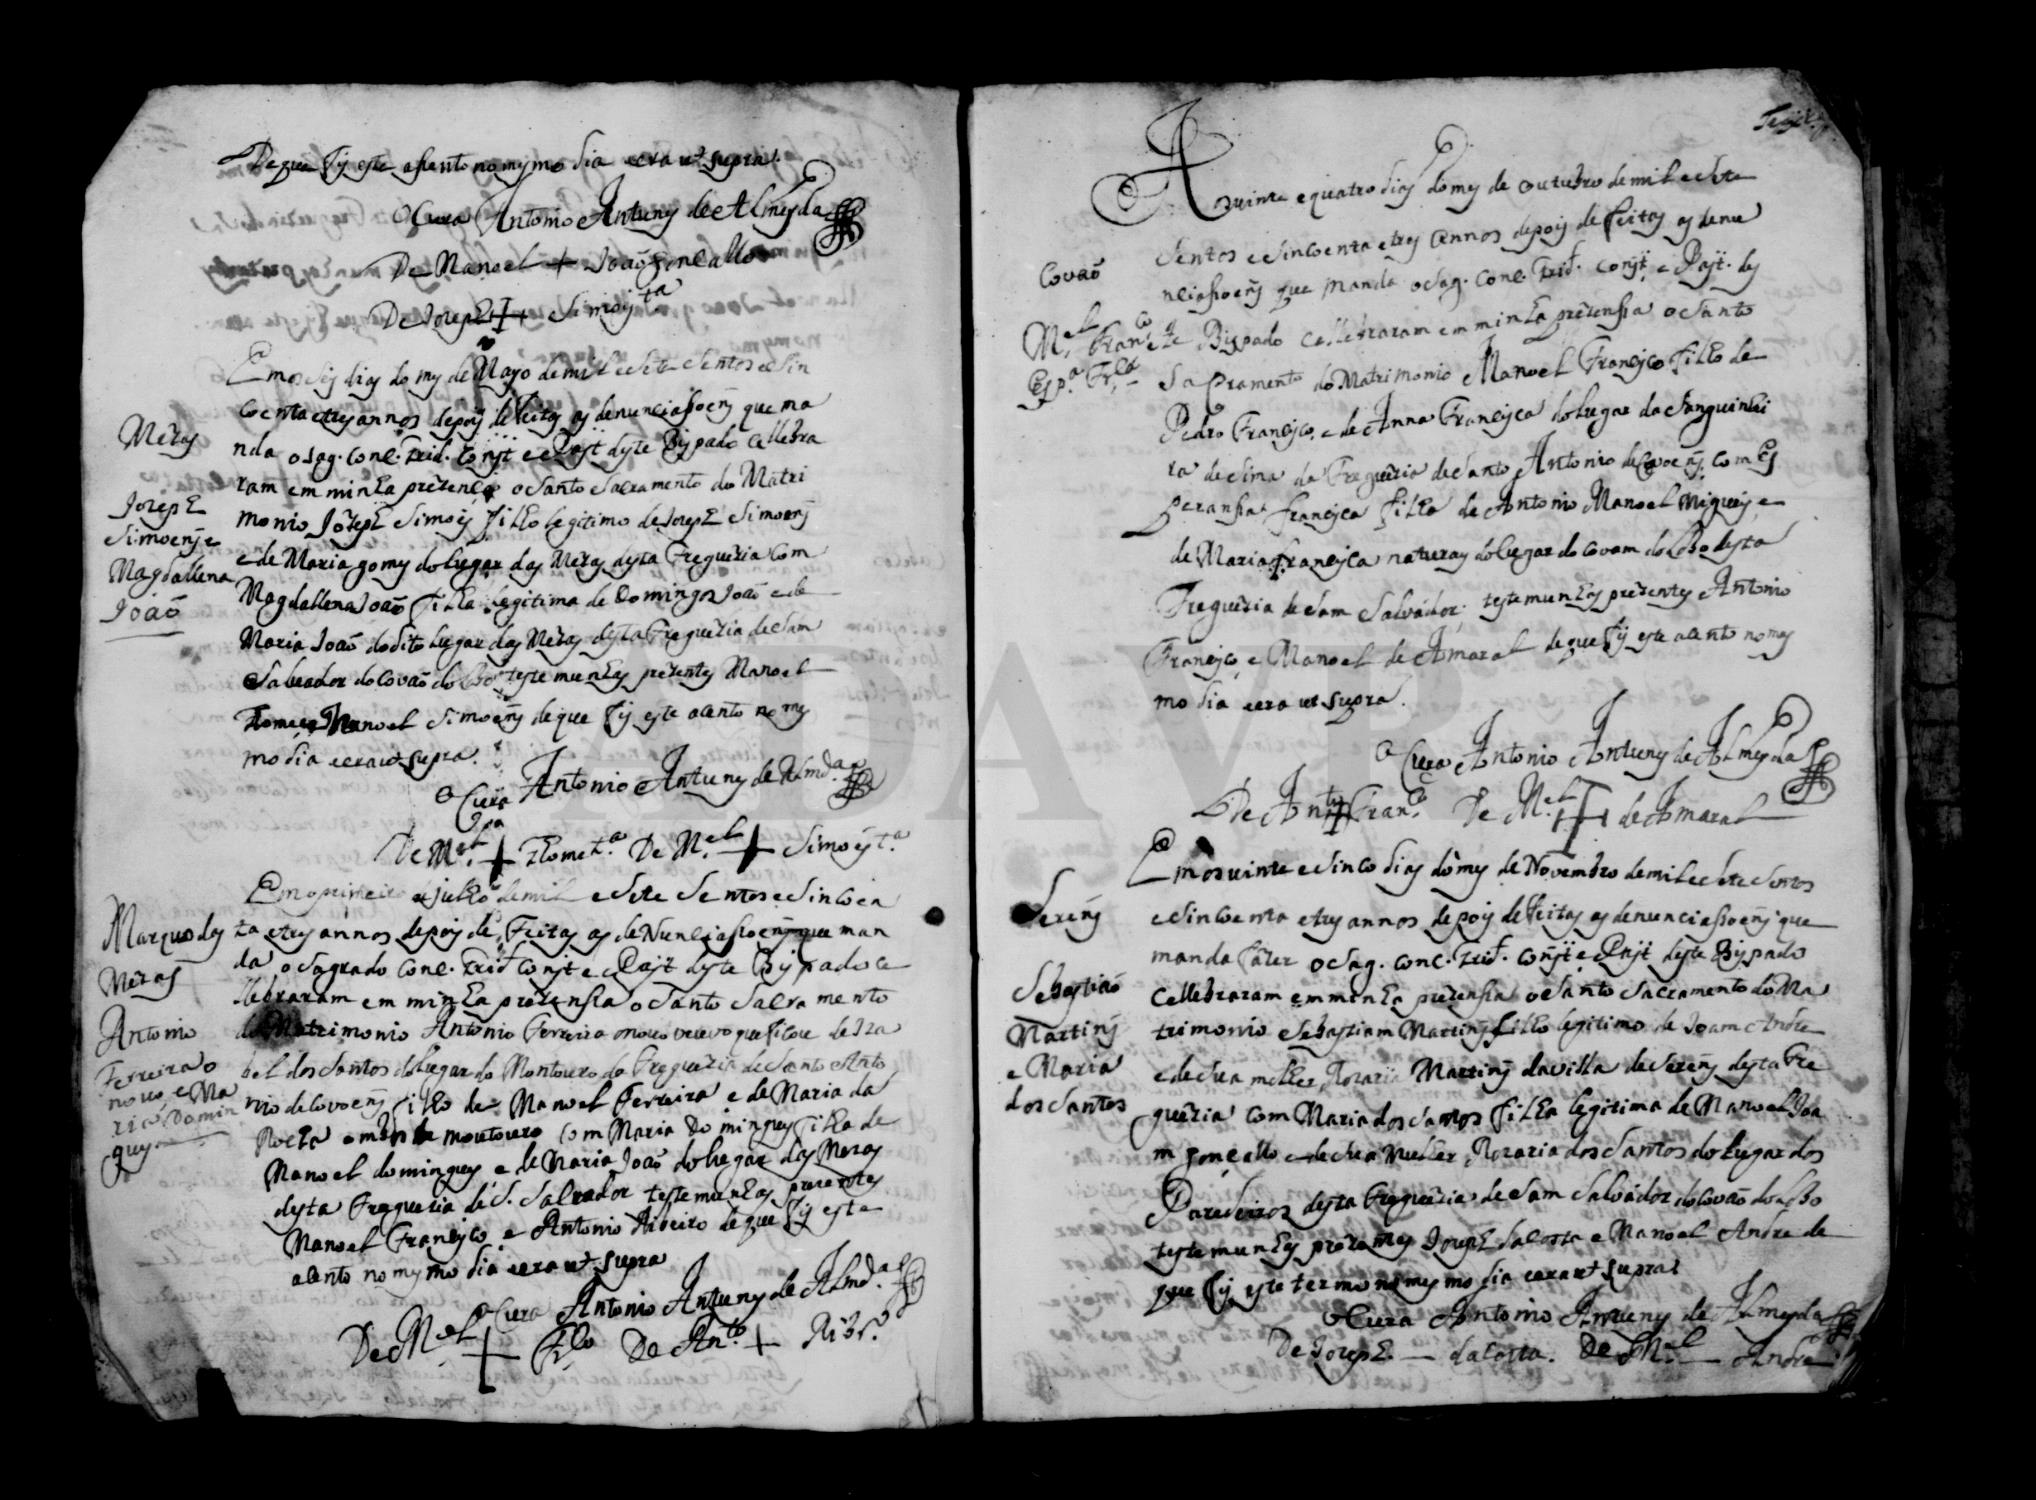 De que fis este asento no mesmo dia e era ut supra.
O Cura Antonio Antunes de Almeyda
De Manoel + João Goncallo
De Joseph + Simois tª
Em os seis dias do mes de Mayo de mil e sete sentos e sin
coenta e tres annos depois de feitas as denunciasoens que ma
nda o sag. Conc. Trid. Const e Past deste Bispado cellebra
ram em minha prezença o santo sacramento do Matri
monio Joseph Simois filho legitimo de Joseph Simoens
e de Maria gomes do lugar das Mezas desta Freguezia com
Magdallena João filha legitima de Domingos João e de
Maria João do dito lugar das Mezas desta Freguezia de Sam
Salvador do Covão do Lobo testemunhas prezentes Manoel
Thome e Manoel Simoens de que fis este acento no mes
mo dia e era ut supra.
O Cura Antonio Antunes de Almdª
De Mel + Thome tª De Mel + Simois tª
Mezas
Joseph
Simoens e
Magdallena
João
Em o primeiro de julho de mil e sete sentos e sincoen
ta e tres annos depois de feitas as denunciasoens que man
da o sagrado Conc. Trid Const e Past deste Bispado ce
llebraram em minha prezensa o santo sacramento
do Matrimonio Antonio Ferreira o novo viuvo que ficou de Iza
bel dos Santos do lugar do Montouro da Freguezia de Santo Anto
nio de Covoens filho de Manoel Ferreira e de Maria da
Rocha do Montouro com Maria Domingues filha de
Manoel domingues e de Maria João do lugar das Mezas
desta Freguezia de S. Salvador testemunhas prezentes
Manoel Francisco e Antonio Ribeiro de que fis este
acento no mesmo dia e era ut supra
O Cura Antonio Antunes de Almdª
De Mel + Frco De Anto + Ribrº
Marquo das
Mezas
Antonio
Ferreira o
novo e Ma
ria Domin
gues
Aos vinte e quatro dias do mes de outubro de mil e sete
sentos e sincoenta e tres annos depois de feitas as denu
nciasoens que manda o sag. Conc. Trid. Const. e Past. des
te Bispado cellebraram em minha prezensa o santo
sacramento do Matrimonio Manoel Francisco filho de
Pedro Francisco, e de Anna Francisca do lugar da sanguinhei
ra de sima da Freguezia de Santo Antonio de Covoens, com Es
peransa francisca filha de Antonio Manoel Migueis e
de Maria francisca naturaes do lugar do covam do Lobo desta
Freguezia de Sam Salvador; testemunhas prezentes Antonio
Francisco e Manoel de Amaral de que fis este acento no mes
mo dia e era ut supra.
O Cura Antonio Antunes de Almeyda
De Antº + Franco De Mel + de Amaral
Covaõ
Mel Franco e
Espª Frca
Em os vinte e sinco dias do mes de Novembro de mil e sete sentos
e sincoenta e tres annos depois de feitas as denunciasoens que
manda fazer o sag. conc. Trid. Const e Past deste Bispado
cellebraram em minha prezensa o santo sacramento do Ma
trimonio Sebastiam Martins filho legitimo de Joam Andre
e de sua molher Rozaria Martins da villa de Serens desta Fre
guezia com Maria dos Santos filha legitima de Manoel Joa
m gonçallo e de sua mulher Rozaria dos Santos do lugar dos
Paredeiros desta Freguezia de Sam Salvador do Covão do Lobo
testemunhas prezentes Joseph da Costa e Manoel Andre de
que fis este termo no mesmo dia e era ut supra
O Cura Antonio Antunes de Almeyda
De Joseph — da Costa. De Mel — Andre
Serens
Sebastiaõ
Martins
e Maria
dos Santos
ADAVR